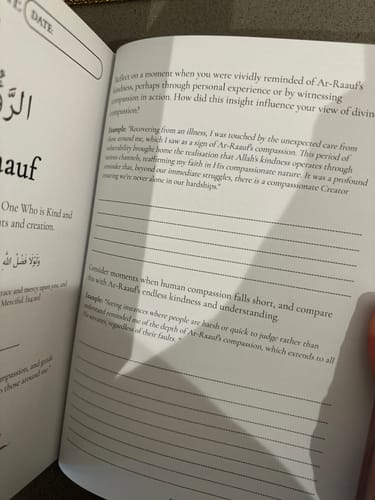 DATE:
الرَّؤُ
aauf
One Who is Kind and
ts and creation.
وَلَوْلَا فَضْلُ اللَّهِ
race and mercy upon you, and
Merciful.
mpassion, and guide
those around me."
Reflect on a moment when you were vividly reminded of Ar-Raauf's
kindness, perhaps through personal experience or by witnessing
compassion in action. How did this insight influence your view of divine
compassion?
Example: "Recovering from an illness, I was touched by the unexpected care from
those around me, which I saw as a sign of Ar-Raauf's compassion. This period of
vulnerability brought home the realisation that Allah's kindness operates through
various channels, reaffirming my faith in His compassionate nature. It was a profound
reminder that, beyond our immediate struggles, there is a compassionate Creator
ensuring we're never alone in our hardships."
Consider moments when human compassion falls short, and compare
this with Ar-Raauf's endless kindness and understanding.
Example: "Seeing instances where people are harsh or quick to judge rather than
understand reminded me of the depth of Ar-Raauf's compassion, which extends to all
His servants, regardless of their faults."